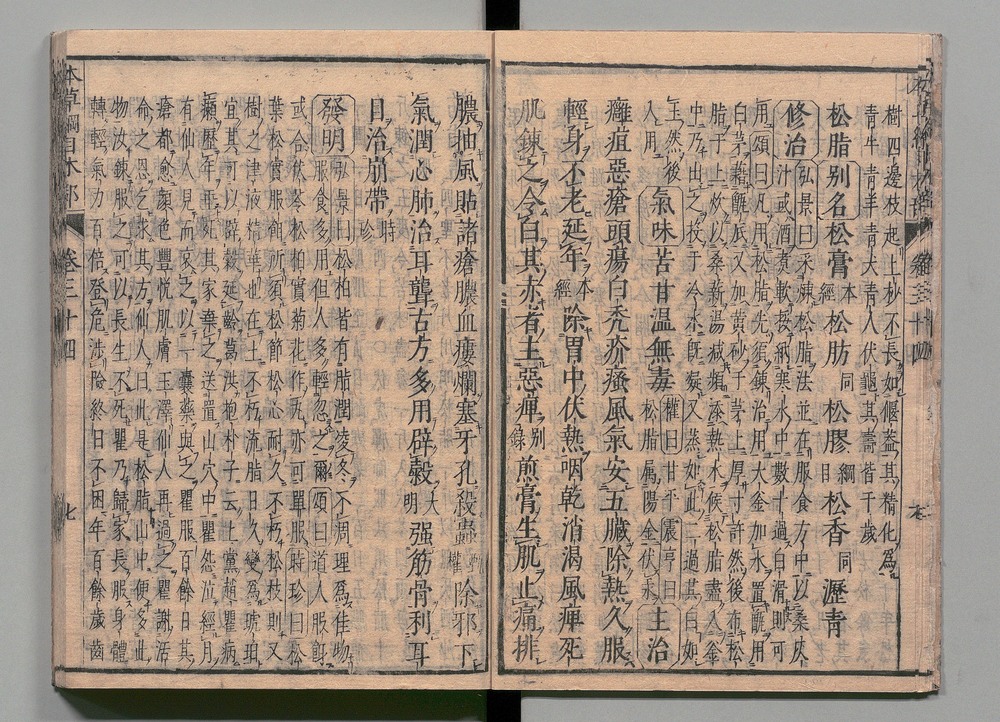 樹四邊枝起上杪不長如偃葢其精化為
青牛青羊青犬青人伏龜其壽皆千歲
松脂别名松膏本經松肪同松膠綱目松香同瀝青
修治弘景曰采煉松脂法並在服食方中以桑灰
汁或酒煮軟挼納寒水中數十過白滑則可
用頌曰凡用松脂先須鍊治用大釜加水置甑用
白茅藉甑底又加黃砂于茅上厚寸許然後布松
脂于上炊以桑薪湯減頻添熱水候松脂盡入釜
中乃出之投于冷水既凝又蒸如此二過其白如
玉然後入用氣味苦甘溫無毒權曰甘平震亨曰松脂屬陽金伏汞主治
癰疽惡瘡頭瘍白秃疥瘙風氣安五臟除熱久服
輕身不老延年本經除胃中伏熱咽乾消渴風痺死
肌鍊之令白其赤者主惡痺别錄煎膏生肌止痛排
膿抽風貼諸瘡膿血瘻爛塞牙孔殺蟲甄權除邪下
氣潤心肺治耳聾古方多用辟穀大明强筋骨利耳
目治崩帶時珍
發明弘景曰松柏皆有脂潤凌冬不凋理為佳物
服食多用但人多輕忽之爾頌曰道人服餌
或合茯苓松柏實菊花作丸亦可單服時珍曰松
樹之津液精華也在土不朽流脂日久變為琥珀
宜其可以辟穀延齡葛洪抱朴子云上黨趙瞿病
癩歷年垂死其家棄之送置山穴中瞿怨泣經月
有仙人見而哀之以一囊藥與之瞿服百餘日其
瘡都愈顏色豐悅肌膚玉澤仙人再過之瞿謝活
命之恩乞求其方仙人曰此是松脂山中便多此
物汝鍊服之可以長生不死瞿乃歸家長服身體
轉輕氣力百倍登危涉險終日不困年百餘歲齒
本草綱目木部
卷三十四
七